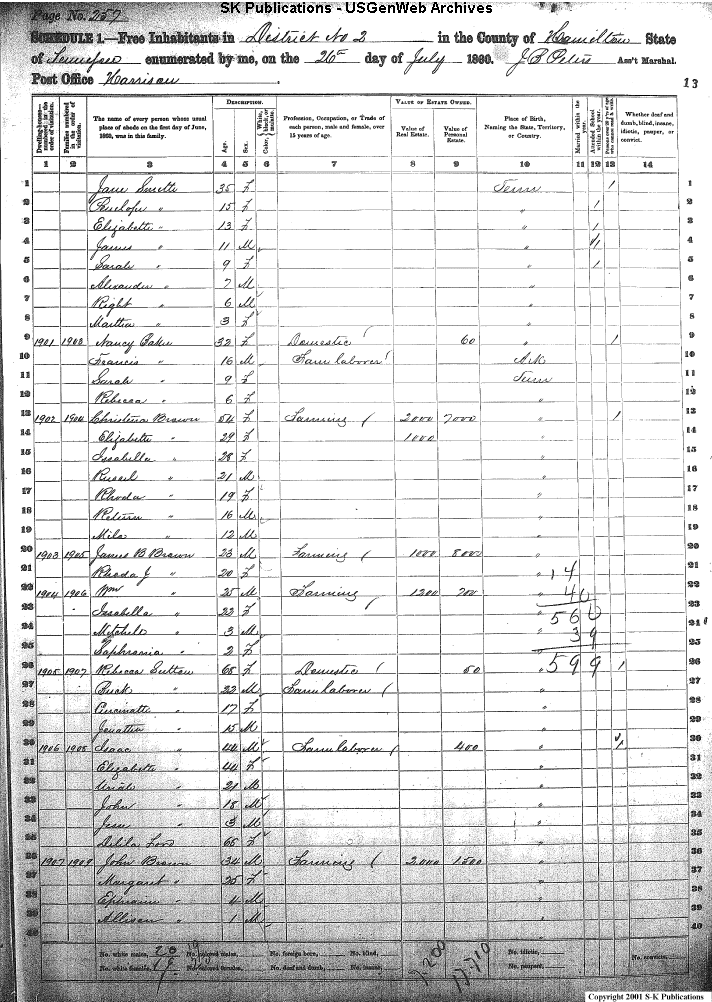 SK Publications - USGenWeb Archives
Page No. 257
SCHEDULE 1.—Free Inhabitants in District No 2 in the County of Hamilton State
of Tennessee enumerated by me, on the 26 day of July 1860. J B Peters Ass't Marshal.
Post Office Harrison
13
Dwelling-houses—numbered in the order of visitation.
Families numbered in the order of visitation.
The name of every person whose usual place of abode on the first day of June, 1860, was in this family.
DESCRIPTION.
Age.
Sex.
Color, White, black, or mulatto.
Profession, Occupation, or Trade of each person, male and female, over 15 years of age.
VALUE OF ESTATE OWNED.
Value of Real Estate.
Value of Personal Estate.
Place of Birth, Naming the State, Territory, or Country.
Married within the year.
Attended School within the year.
Whether deaf and dumb, blind, insane, idiotic, pauper, or convict.
1 2 3 4 5 6 7 8 9 10 11 12 13 14
1 Jane 35 f Tenn / 1
2 Penelope " 15 f " 1 2
3 Elizabeth " 13 f " 1 3
4 James " 11 M " 1 4
5 Sarah " 9 f " 1 5
6 Alexander " 7 M " 6
7 Right " 6 M " 7
8 Martha " 3 f " 8
9 1901 1903 Nancy 32 f Domestic 60 " 1 9
10 Francis " 16 M Farm laborer Ark 10
11 Sarah " 9 f Tenn 11
12 Rebecca " 6 f " 12
13 1902 1904 Christena Brown 54 f Farming 2000 7000 " 1 13
14 Elizabeth " 29 f 1000 " 14
15 Issabella " 28 f " 15
16 Russel " 21 M " 16
17 Rhoda " 19 f " 17
18 " 16 M " 18
19 " 12 M " 19
20 1903 1905 James B Brown 23 M Farming 1000 8000 " 20
21 Rhoda J " 20 f " 14 21
22 1904 1906 Wm " 25 M Farming 1200 700 " 40 22
23 Issabella " 22 f " 560 23
24 Mitchel " 3 M " 39 24
25 " 2 f " 25
26 1905 1907 Rebecca Sutton 65 f Domestic 50 " 599 1 26
27 Buck " 22 M Farm laborer " 27
28 " 17 f " 28
29 " 15 M " 29
30 1906 1908 Isaac " 44 M Farm laborer 400 " 1 30
31 Elizabeth " 44 f " 31
32 " 21 M " 32
33 John " 18 M " 33
34 " 3 M " 34
35 65 f " 35
36 1907 1909 John Brown 34 M Farming 2,000 1500 " 36
37 Margaret " 25 f " 37
38 Ephraim " 4 M " 38
39 Allison " 1 M " 39
40 40
No. white males, 20 No. colored males, No. foreign born, No. blind, No. idiotic, No. convicts,
No. white females, 19 No. colored females, No. deaf and dumb, No. insane, No. paupers,
17710
Copyright 2001 S-K Publications